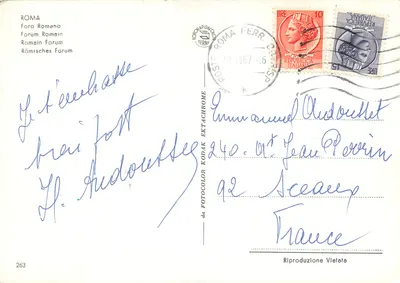 ROMA
Foro Romano
Forum Romain
Romain Forum
Römisches Forum
Je t'embrasse
bien fort
H. Audouttet
da FOTOCOLOR KODAK EKTACHROME
POSTE ROMA FERR.
10
Emmanuel Audouttet
240 Jean Perrin
92 Sceaux
France
Riproduzione Vietata
263